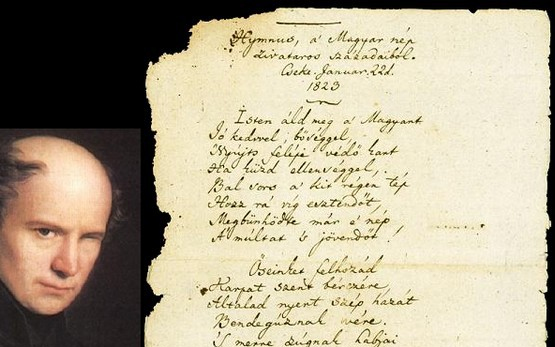 Hymnus, a' Magyar nép
zivataros századaiból.
Cseke. Januar. 22d.
1823
Isten áld meg a' Magyart
Jó kedvvel, bőséggel,
Nyújts feléje védő kart
Ha küzd ellenséggel,
Bal sors a' kit régen tép
Hozz rá víg esztendőt,
Megbűnhődte már e' nép
A' múltat 's jövendőt!
Őseinket felhozád
Kárpát szent bérczére,
Általad nyert szép hazát
Bendegúznak vére.
'S merre zúgnak habjai